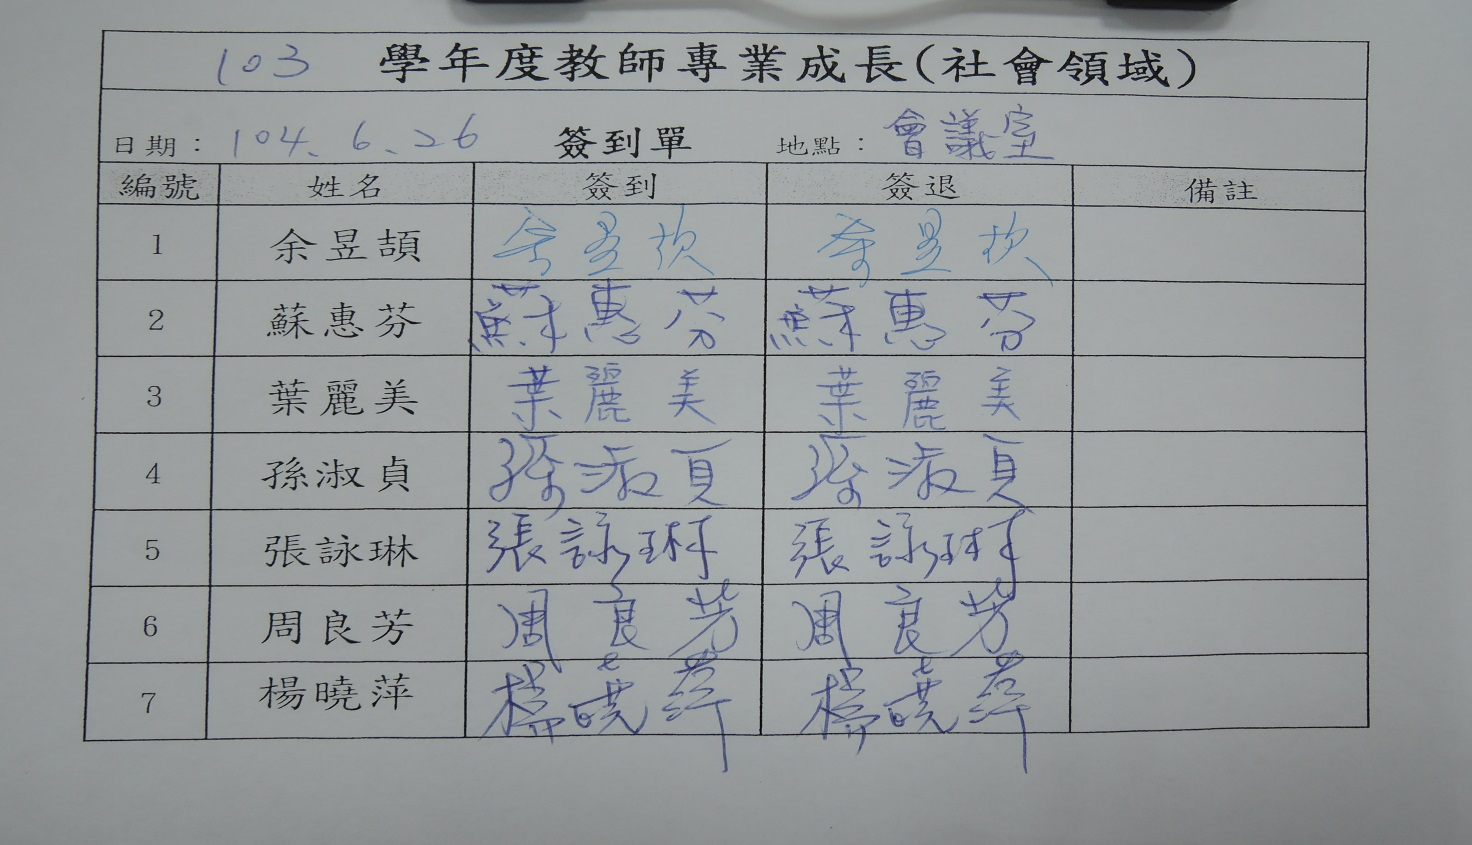 103 學年度教師專業成長(社會領域)
日期：104.6.26 簽到單 地點：會議室
編號 姓名 簽到 簽退 備註
1 余昱頡
2 蘇惠芬 蘇惠芬 蘇惠芬
3 葉麗美 葉麗美 葉麗美
4 孫淑貞 孫淑貞 孫淑貞
5 張詠琳 張詠琳 張詠琳
6 周良芳 周良芳 周良芳
7 楊曉萍 楊曉萍 楊曉萍